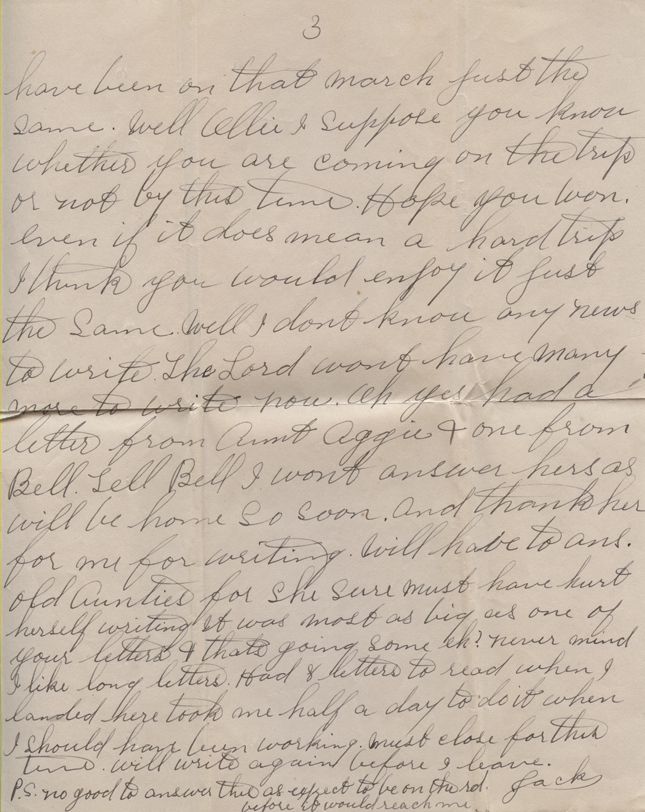 3
have been on that march just the
same. Well Ollie I suppose you know
whether you are coming on the trip
or not by this time. Hope you won.
even if it does mean a hard trip
I think you would enjoy it just
the same. Well I dont know any news
to write. The Lord wont have many
more to write now. Oh yes had a
letter from Aunt Aggie & one from
Bell. Tell Bell I wont answer hers as
will be home so soon. And thank her
for me for writing. Will have to ans.
old Aunties for she sure must have hurt
herself writing It was most as big as one of
your letters & thats going some eh? never mind
I like long letters. Had 8 letters to read when I
landed here took me half a day to do it when
I should have been working. must close for this
time. will write again before I leave.
P.S. no good to answer this as expect to be on the rd. Jack
before it would reach me.